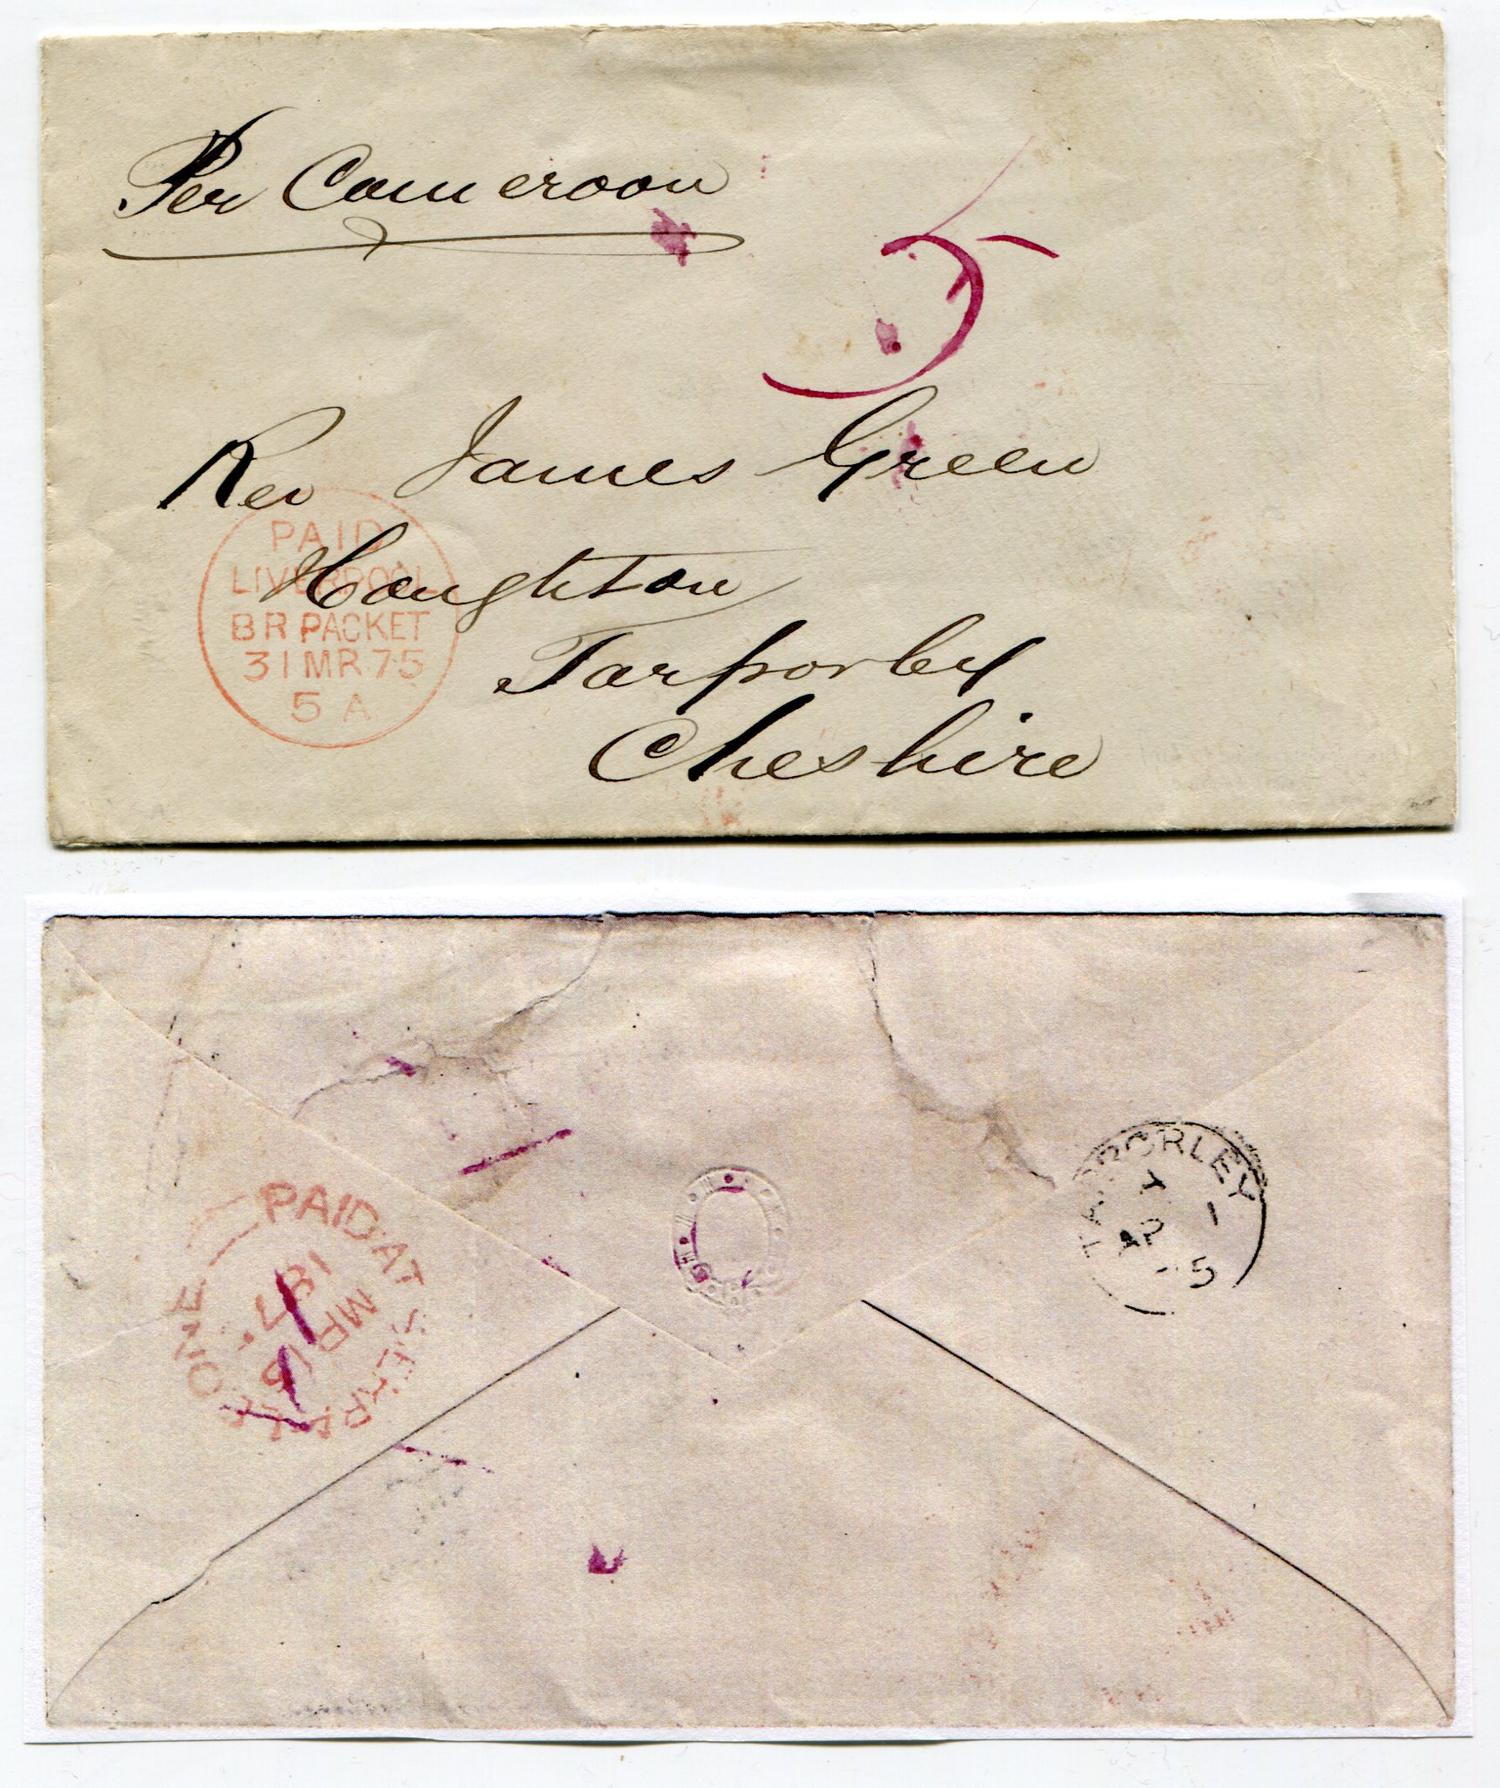 Per Cameroon
5
Rev James Green
Houghton
Tarporley
Cheshire
PAID
LIVERPOOL
BR PACKET
31 MR 75
5 A
PAID AT SIERRA LEONE
MR 16
187
TARPORLEY
AP 1
5